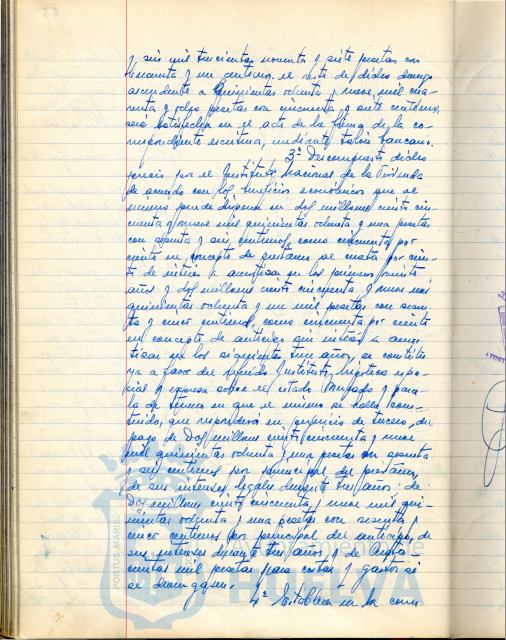 y seis mil trescientas noventa y siete pesetas con
cincuenta y un centimos. el resto de dicho
ascendente a quinientas ochenta y nueve mil cua-
renta y ocho pesetas con cincuenta y siete centimos,
será satisfecha en el acto de la firma de la co-
rrespondiente escritura, mediante talón bancario.
3º Descompuesto dicho
precio por el Instituto Nacional de la Vivienda
de acuerdo con los beneficios económicos que el
mismo puede disponer en dos millones ciento cin-
cuenta y nueve mil quinientas ochenta y una pesetas
con sesenta y seis centimos, como cincuenta por
ciento en concepto de prestamo al cuatro por cien-
to de interés a amortizar en los primeros
años y dos millones ciento cincuenta y nueve mil
quinientas ochenta y un mil pesetas con sesen-
ta y cinco centimos, como cincuenta por ciento
en concepto de anticipo sin interés a amor-
tizar en los siguientes años, se constitu-
ya a favor del referido Instituto, hipoteca espe-
cial y expresa sobre el citado Mercado y parce-
la de terreno en que el mismo se halla cons-
truido, que responderá en perjuicio de tercero, del
pago de dos millones ciento cincuenta y nueve
mil quinientas ochenta y una pesetas con sesenta
y seis centimos por principal del prestamo,
de sus intereses legales durante tres años; de
dos millones ciento cincuenta y nueve mil qui-
nientas ochenta y una pesetas con sesenta y
cinco centimos por principal del anticipo, de
sus intereses durante tres años y de
cientas mil pesetas para costas y gastos si
se devengasen.
4º Establecer en la
PORTUS MARIS
Ayuntamiento de
HUELVA